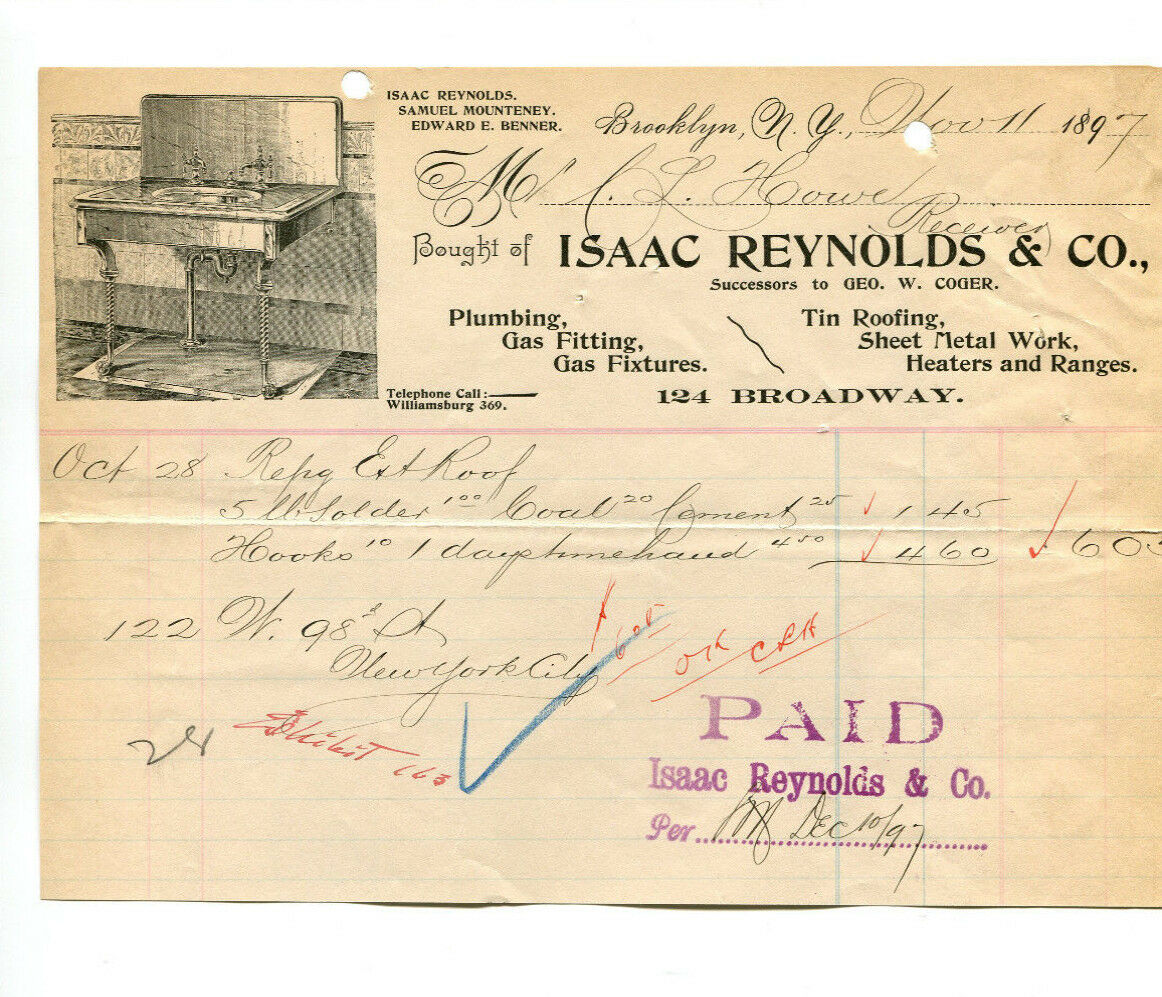 ISAAC REYNOLDS.
SAMUEL MOUNTENEY.
EDWARD E. BENNER.
Brooklyn, N. Y., Nov 11 1897
Mr C. L. Howe
Receiver
Bought of ISAAC REYNOLDS & CO.,
Successors to GEO. W. COGER.
Plumbing,
Gas Fitting,
Gas Fixtures.
Tin Roofing,
Sheet Metal Work,
Heaters and Ranges.
Telephone Call:
Williamsburg 369.
124 BROADWAY.
Oct 28 Repg Ext Roof
5 lb Solder 1.00 Coal 20 Cement 25 1 45
Hooks 10 1 days time hand 4.50 4 60 6 05
122 W. 98th St
New York City
6.05
OK CLH
Exhibit 163
PAID
Isaac Reynolds & Co.
Per SM Dec 10/97